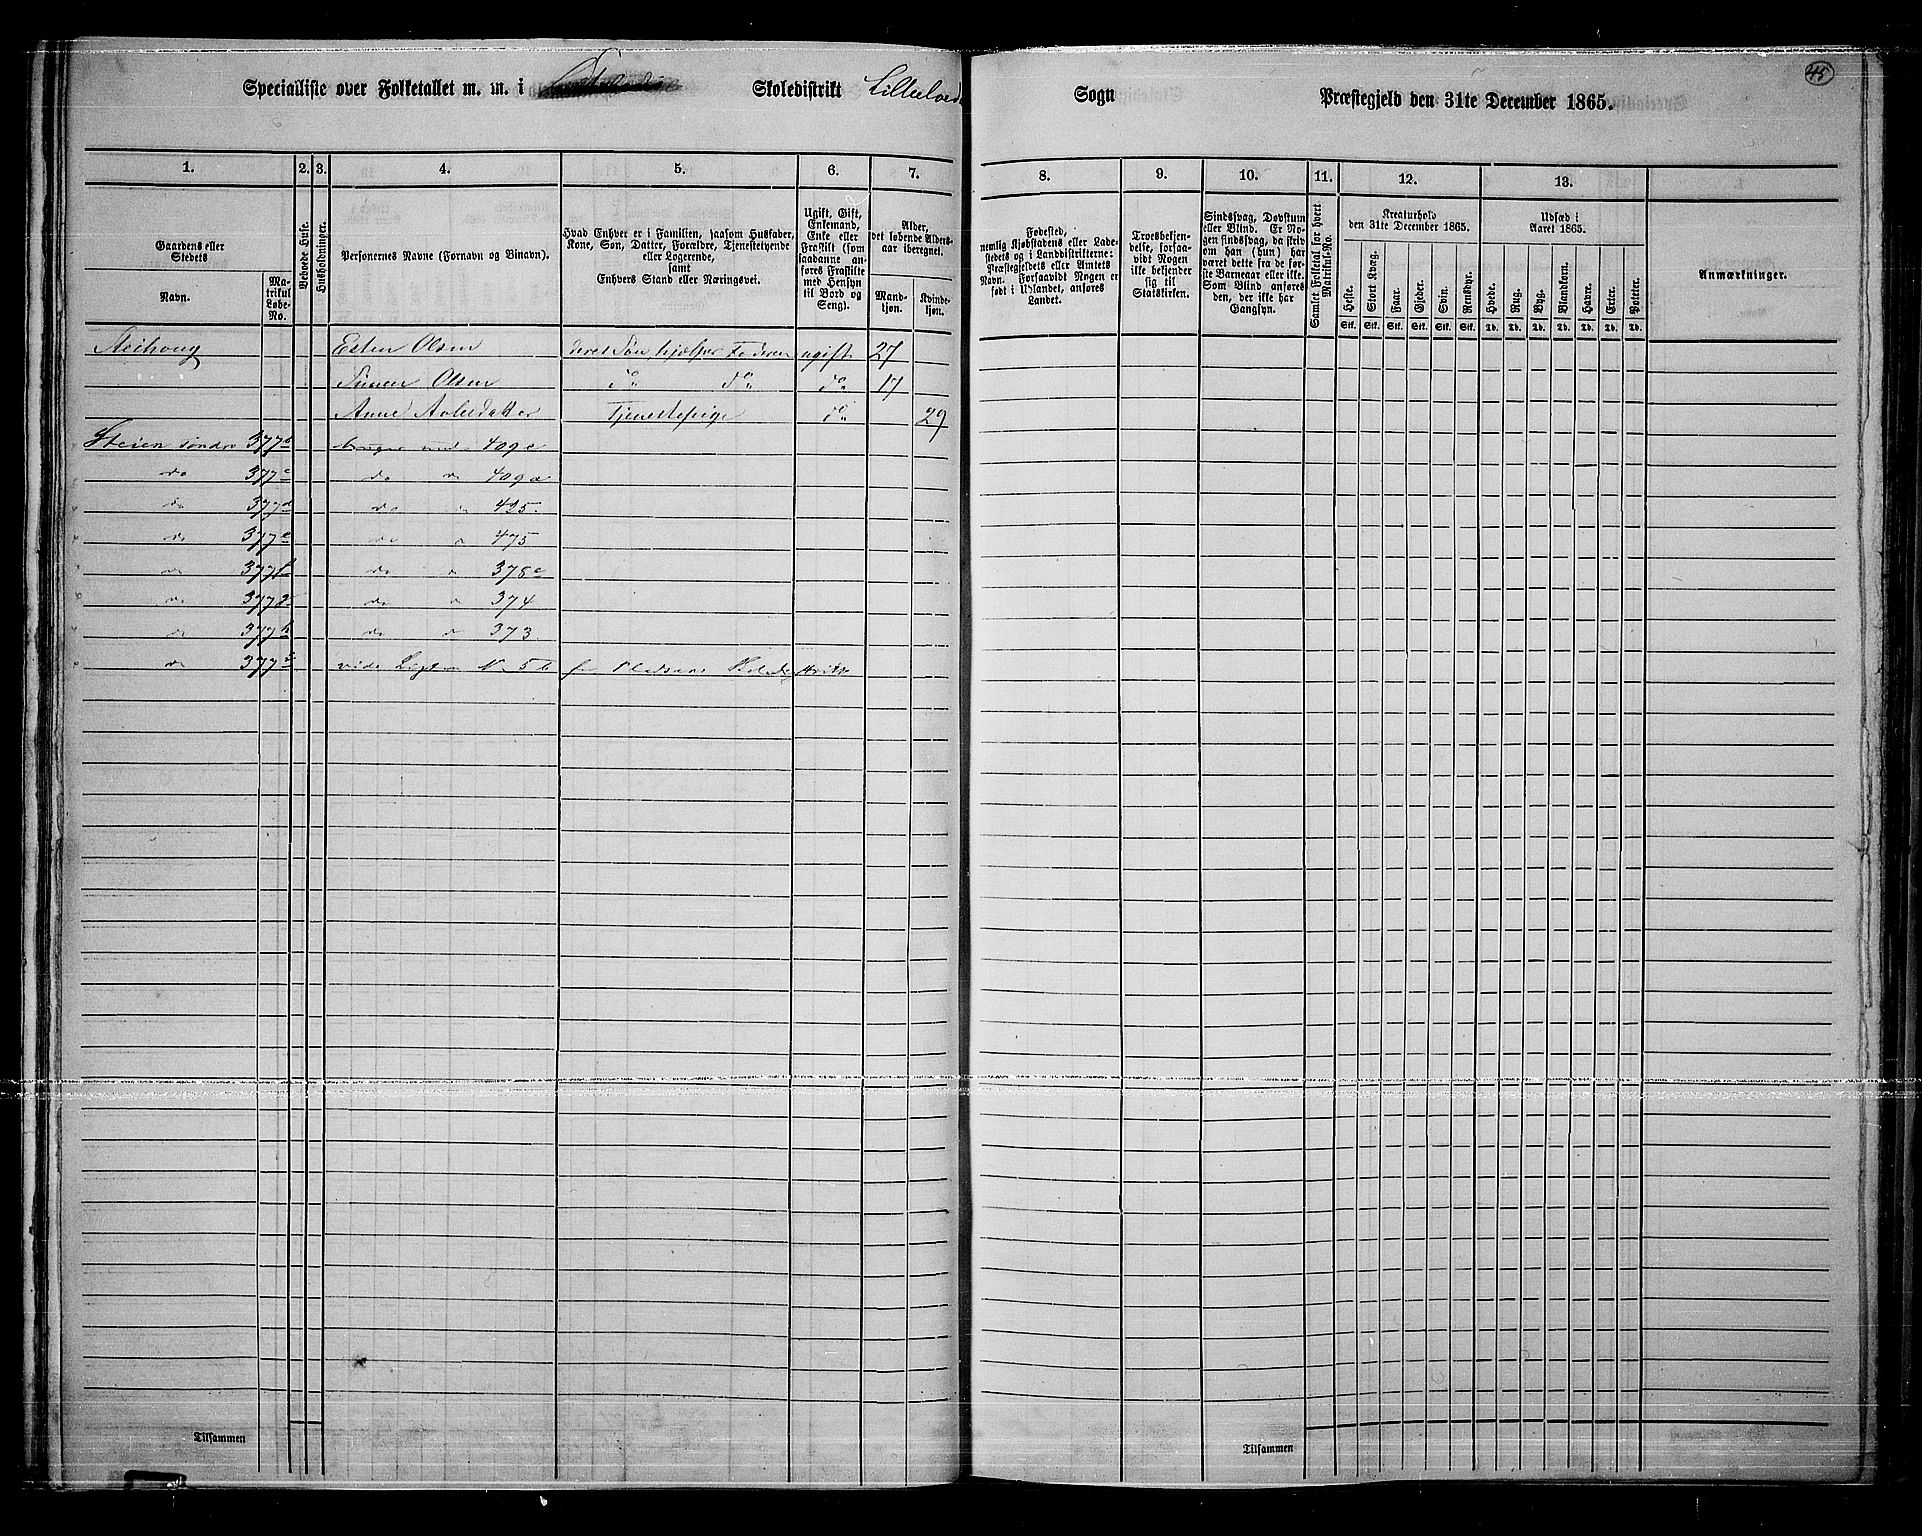 Specialliste over Folketallet m. m. i Skoledistrikt Lilleelvedal
Sogn Præstegjeld den 31te December 1865.
45
1. 2. 3. 4. 5. 6. 7.
8. 9. 10. 11. 12. 13.
Gaardens eller Stedets
Navn.
Matrikul Løbe-No.
Beboede Huse.
Husholdninger.
Personernes Navne (Fornavn og Binavn).
Hvad Enhver er i Familien, saasom Husfader, Kone, Søn, Datter, Forældre, Tjenestetyende eller Logerende, samt Enhvers Stand eller Næringsvei.
Ugift, Gift, Enkemand, Enke eller Fraskilt (som saadanne anføres Fraskilte med Hensyn til Bord og Seng).
Alder, det løbende Aldersaar iberegnet.
Mandkjøn.
Kvindekjøn.
Fødested, nemlig Kjøbstadens eller Ladestedets og i Landdistrikterne: Præstegjeldets eller Amtets Navn. Forsaavidt Nogen er født i Udlandet, anføres Landet.
Troesbekjendelse, forsaavidt Nogen ikke bekjender sig til Statskirken.
Sindssvag, Døvstum eller Blind. Er Nogen sindssvag, da skrives om han (hun) har været dette fra de første Barneaar eller ikke. Som Blind anføres den, der ikke har Gangsyn.
Samlet Folketal for hvert Matrikul-No.
Kreaturhold den 31te December 1865.
Heste. Stort Kvæg. Faar. Gjeder. Svin. Rensdyr.
Stk. Stk. Stk. Stk. Stk. Stk.
Udsæd i Aaret 1865.
Hvede. Rug. Byg. Blandkorn. Havre. Erter. Poteter.
Td. Td. Td. Td. Td. Td. Td.
Anmærkninger.
Esten Olsen deres Søn hjælper Faderen ugift 27
Simen Olsen do do do 17
Anne Tjenestepige do 29
Steien søndre 377b bruges under 409c
do 377c do 409a
do 377d do 425
do 377e do 475
do 377f do 378c
do 377g do 374
do 377h do 373
do 377i vide No 5b
Tilsammen
Tilsammen